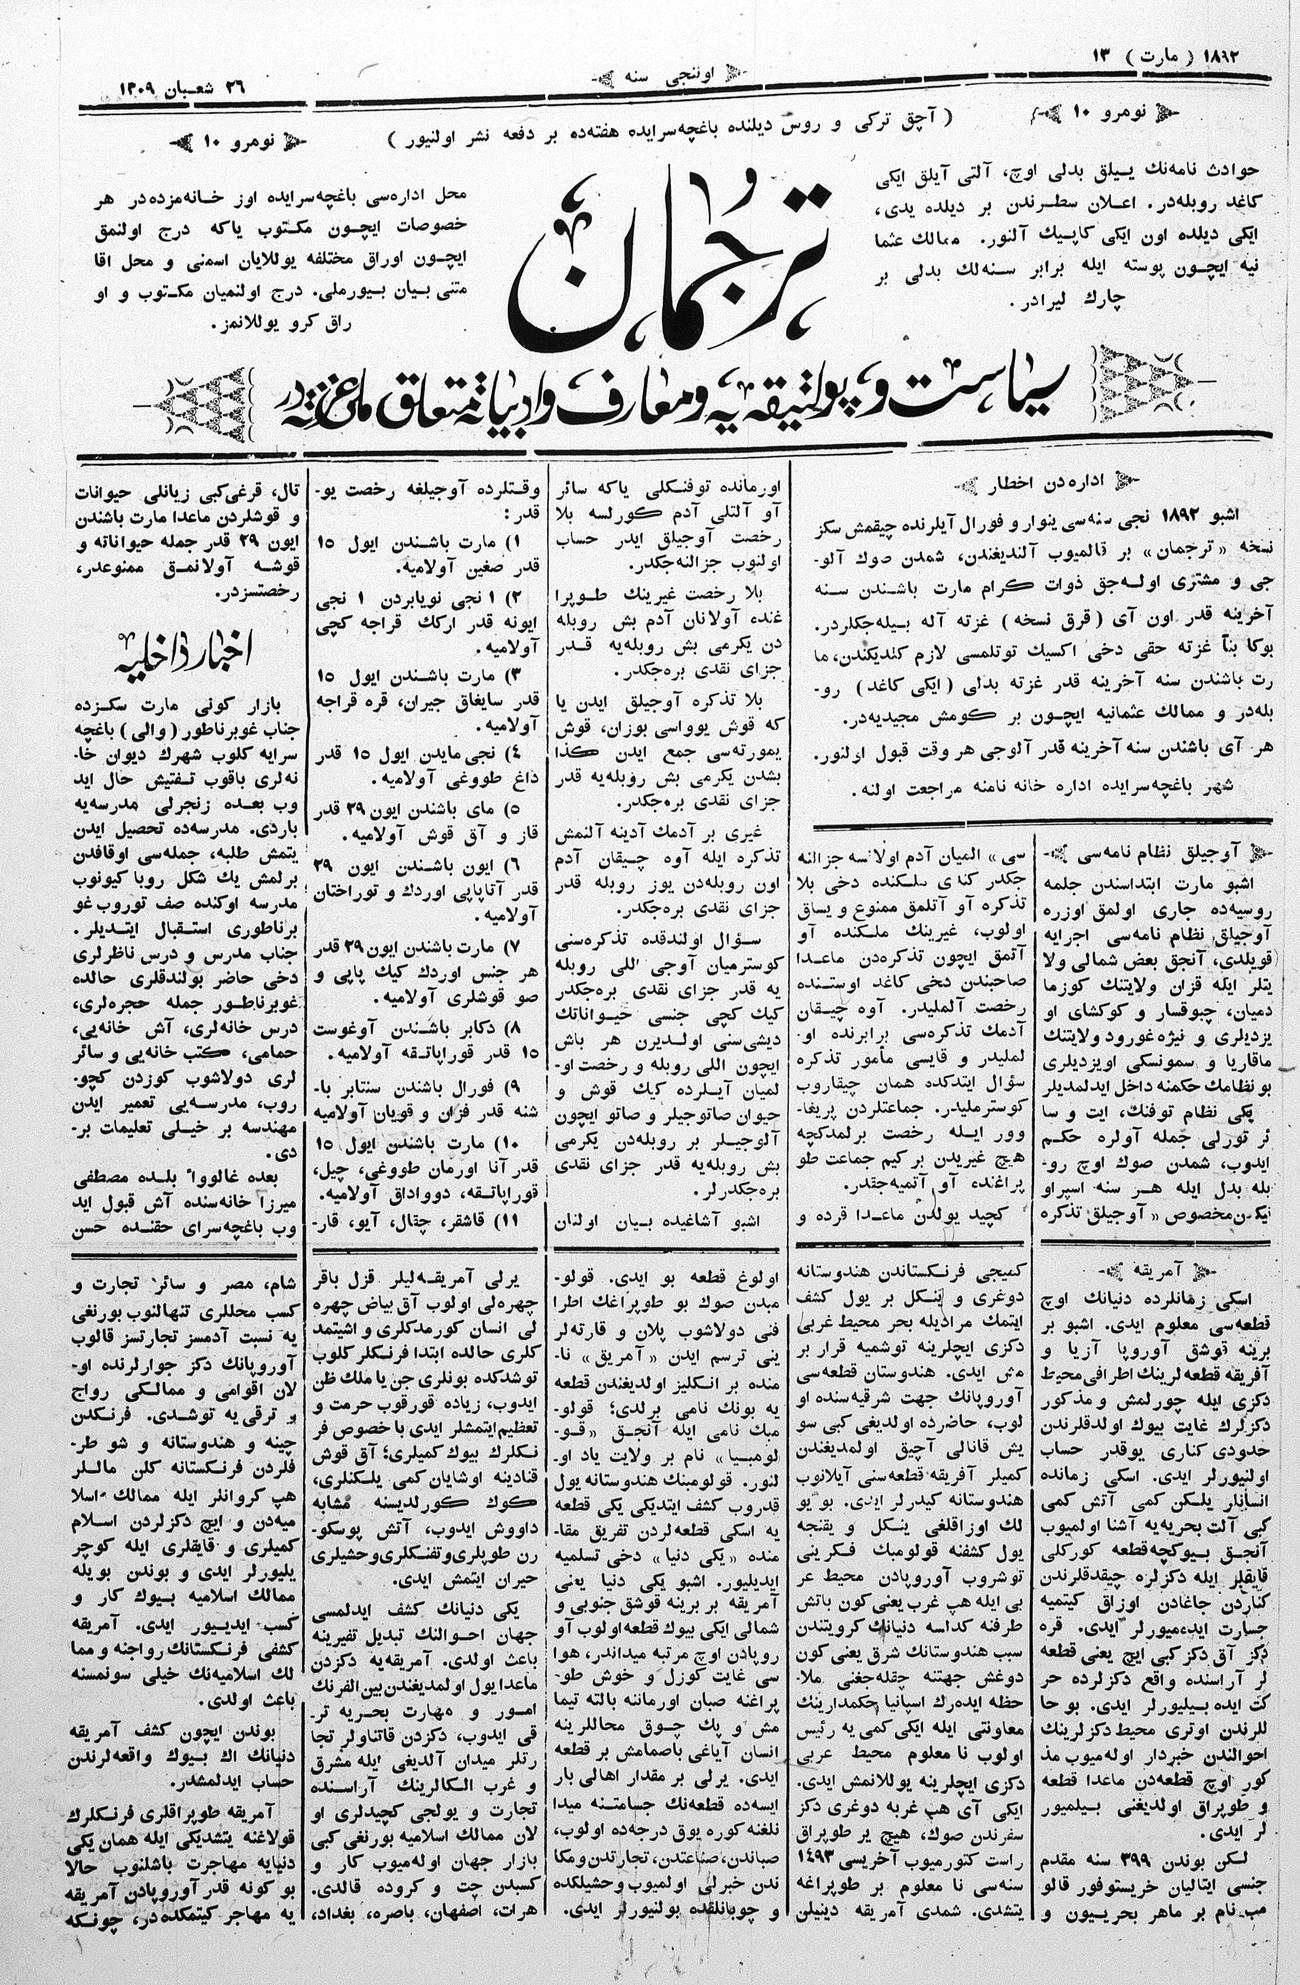 ١٨٩٢ ( مارت ) ١٣
اوننجی سنه
٢٦ شعبان ١٣٠٩
نومرو ١٠
( آچق تركی و روس ديلنده باغچه‌سرايده هفته‌ده بر دفعه نشر اولنيور )
نومرو ١٠
حوادث نامه‌نك ييلق بدلی اوچ، آلتی آيلق ايكی
كاغد روبله‌در. اعلان سطرندن بر ديلده يدی،
ايكی ديلده اون ايكی كاپيك آلنور. ممالك عثما
نيه ايچون پوسته ايله برابر سنه‌لك بدلی بر
چارك ليرادر.
ترجمان
محل اداره‌سی باغچه‌سرايده اوز خانه‌مزده‌در هر
خصوصات ايچون مكتوب ياكه درج اولنمق
ايچون اوراق مختلفه يوللايان اسمنی و محل اقا
متنی بيان بيورملی. درج اولنميان مكتوب و او
راق كرو يوللانمز.
سياست و پولتيقه‌يه و معارف و ادبياته متعلق ملی غزته‌در
اداره‌دن اخطار
اشبو ١٨٩٢ نجی سنه‌سی ينوار و فورال آيلرنده چيقمش سكز
نسخه «ترجمان» بر قالميوب آلنديغندن، شمدن صوك آلو-
جی و مشتری اوله‌جق ذوات كرام مارت باشندن سنه
آخرينه قدر اون آی (قرق نسخه) غزته آله بيله‌جكلردر.
بوكا بناً غزته حقی دخی اكسيك توتلمسی لازم كلديكندن، ما
رت باشندن سنه آخرينه قدر غزته بدلی (ايكی كاغد) رو-
بله‌در و ممالك عثمانيه ايچون بر كومش مجيديه‌در.
هر آی باشندن سنه آخرينه قدر آلوجی هر وقت قبول اولنور.
شهر باغچه‌سرايده اداره خانه نامنه مراجعت اولنه.
آوجيلق نظام نامه‌سی
اشبو مارت ابتداسندن جلمه
روسيه‌ده جاری اولمق اوزره
آوجيلق نظام نامه‌سی اجرايه
قويلدی، آنجق بعض شمالی ولا
يتلر ايله قزان ولايتنك كوزما
دميان، چبوقسار و كوكشای او
يزديلری و نيژه‌غورود ولايتنك
ماقاريا و سمونسكی اويزديلری
بو نظامك حكمنه داخل ايدلمديلر
يكی نظام توفنك، ايت و سا
ئر تورلی جمله آولره حكم
ايدوب، شمدن صوك اوچ رو-
بله بدل ايله هر سنه اسپراو
نيكدن مخصوص «آوجيلق تذكره
سی» الميان آدم اولانسه جزالنه
جكدر كندی ملكنده دخی بلا
تذكره آو آتلمق ممنوع و يساق
اولوب، غيرينك ملكنده آو
آتمق ايچون تذكره‌دن ماعدا
صاحبندن دخی كاغد اوستنده
رخصت آلمليدر. آوه چيقان
آدمك تذكره‌سی برابرنده او-
لمليدر و قايسی مأمور تذكره
سؤال ايتدكده همان چيقاروب
كوسترمليدر. جماعتلردن پريغا-
وور ايله رخصت برلمدكچه
هيچ غيريدن بر كيم جماعت طو
پراغنده آو آتميه‌جقدر.
كچيد يولدن ماعدا قرده و
اورمانده توفنكلی ياكه سائر
آو آلتلی آدم كورلسه بلا
رخصت آوجيلق ايدر حساب
اولنوب جزالنه‌جكدر.
بلا رخصت غيرينك طوپرا
غنده آولانان آدم بش روبله
دن يكرمی بش روبله‌يه قدر
جزای نقدی بره‌جكدر.
بلا تذكره آوجيلق ايدن يا
كه قوش يوواسی بوزان، قوش
يمورته‌سی جمع ايدن كذا
بشدن يكرمی بش روبله‌يه قدر
جزای نقدی بره‌جكدر.
غيری بر آدمك آدينه آلنمش
تذكره ايله آوه چيقان آدم
اون روبله‌دن يوز روبله قدر
جزای نقدی بره‌جكدر.
سؤال اولندقده تذكره‌سنی
كوسترميان آوجی اللی روبله
يه قدر جزای نقدی بره‌جكدر
كيك كچی جنسی حيواناتك
ديشی‌سنی اولديرن هر باش
ايچون اللی روبله و رخصت او-
لميان آيلرده كيك قوش و
حيوان صاتوجيلر و صاتو ايچون
آلوجيلر بر روبله‌دن يكرمی
بش روبله‌يه قدر جزای نقدی
بره‌جكدرلر.
اشبو آشاغيده بيان اولنان
وقتلرده آوجيلغه رخصت يو-
قدر:
١) مارت باشندن ايول ١٥
قدر صغين آولاميه.
٢) ١ نجی نويابردن ١ نجی
ايونه قدر اركك قراجه كچی
آولاميه.
٣) مارت باشندن ايول ١٥
قدر سايغاق جيران، قره قراجه
آولاميه.
٤) نجی مايدن ايول ١٥ قدر
داغ طووغی آولاميه.
٥) مای باشندن ايون ٢٩ قدر
قاز و آق قوش آولاميه.
٦) ايون باشندن ايون ٢٩
قدر آتاپاپی اوردك و توراختان
آولاميه.
٧) مارت باشندن ايون ٢٩ قدر
هر جنس اوردك كيك پاپی و
صو قوشلری آولاميه.
٨) دكابر باشندن آوغوست
١٥ قدر قوراپاتقه آولاميه.
٩) فورال باشندن سنتابر با-
شنه قدر فزان و قويان آولاميه
١٠) مارت باشندن ايول ١٥
قدر آنا اورمان طووغی، چيل،
قوراپاتقه، دوواداق آولاميه.
١١) قاشقر، چقال، آيو، قار-
تال، قرغی‌كبی زيانلی حيوانات
و قوشلردن ماعدا مارت باشندن
ايون ٢٩ قدر جمله حيواناته و
قوشه آولانمق ممنوعدر،
رخصتسزدر.
اخبار داخليه
بازار كونی مارت سكزده
جناب غوبرناطور (والی) باغچه
سرايه كلوب شهرك ديوان خا-
نه‌لری باقوب تفتيش حال ايد
وب بعده زنجرلی مدرسه‌يه
باردی. مدرسه‌ده تحصيل ايدن
يتمش طلبه، جمله‌سی اوقافدن
برلمش يك شكل روبا كيونوب
مدرسه اوكنده صف توروب غو
برناطوری استقبال ايتديلر.
جناب مدرس و درس ناظرلری
دخی حاضر بولندقلری حالده
غوبرناطور جمله حجره‌لری،
درس خانه‌لری، آش خانه‌يی،
حمامی، مكتب خانه‌يی و سائر
لری دولاشوب كوزدن كچو-
روب، مدرسه‌يی تعمير ايدن
مهندسه بر خيلی تعليمات بر-
دی.
بعده غالووا بلده مصطفی
ميرزا خانه‌سنده آش قبول ايد
وب باغچه‌سرای حقنده حسن
آمريقه
اسكی زمانلرده دنيانك اوچ
قطعه‌سی معلوم ايدی. اشبو بر
برينه توشق آوروپا آزيا و
آفريقه قطعه‌لرينك اطرافی محيط
دكزی ايله چورلمش و مذكور
دكزلرك غايت بيوك اولدقلرندن
حدودی كناری يوقدر حساب
اولنيورلر ايدی. اسكی زمانده
انسانلر يلكن كمی آتش كمی
كبی آلت بحريه‌يه آشنا اولميوب
آنجق بيوكچه قطعه كوركلی
قايقلر ايله دكزلره چيقدقلرندن
كناردن جاغادن اوزاق كيتميه
جسارت ايده‌ميورلر ايدی. قره
دكز آق دكز كبی ايچ يعنی قطعه
لر آراسنده واقع دكزلرده حر
كت ايده بيليورلر ايدی. بو حا
للرندن اوتری محيط دكزلرينك
احوالندن خبردار اوله‌ميوب مذ
كور اوچ قطعه‌دن ماعدا قطعه
و طوپراق اولديغنی بيلميور
لر ايدی.
لكن بوندن ٣٩٩ سنه مقدم
جنسی ايتاليان خريستوفور قالو
مب نام بر ماهر بحريون و
كميجی فرنكستاندن هندوستانه
دوغری و ينكل بر يول كشف
ايتمك مراديله بحر محيط غربی
دكزی ايچلرينه توشميه قرار بر
مش ايدی. هندوستان قطعه‌سی
آوروپانك جهت شرقيه‌سنده او
لوب، حاضرده اولديغی كبی سو
يش قانالی آچيق اولمديغندن
كميلر آفريقه قطعه‌سنی آيلانوب
هندوستانه كيدرلر ايدی. بو يو
لك اوزاقلغی ينكل و يقنجه
يول كشفنه قولومبك فكرينی
توشروب آوروپادن محيط عر
بی ايله هپ غرب يعنی كون باتش
طرفنه كدلسه دنيانك كرويتندن
سبب هندوستانك شرق يعنی كون
دوغش جهتنه چقله‌جغنی ملا-
حظه ايده‌رك اسپانيا حكمدارينك
معاونتی ايله ايكی كمی يه رئيس
اولوب نا معلوم محيط عربی
دكزی ايچلرينه يوللانمش ايدی.
ايكی آی هپ غربه دوغری دكز
سفرندن صوك، هيچ ير طوپراق
راست كتورميوب آخريسی ١٤٩٣
سنه‌سی نا معلوم بر طوپراغه
يتشدی. شمدی آمريقه دينيلن
اولوغ قطعه بو ايدی. قولو-
مبدن صوك بو طوپراغك اطرا
فنی دولاشوب پلان و قارته‌لر
ينی ترسم ايدن «آمريق» نا-
منده بر انكليز اولديغندن قطعه
يه بونك نامی برلدی؛ قولو-
مبك نامی ايله آنجق «قو-
لومبيا» نام بر ولايت ياد او-
لنور. قولومبنك هندوستانه يول
قدروب كشف ايتديكی يكی قطعه
يه اسكی قطعه‌لردن تفريق مقا-
منده «يكی دنيا» دخی تسلميه
ايديليور. اشبو يكی دنيا يعنی
آمريقه بر برينه قوشق جنوبی و
شمالی ايكی بيوك قطعه اولوب آو
روپادن اوچ مرتبه ميداندر، هوا
سی غايت كوزل و خوش طو-
پراغنه صبان اورماننه بالته تيما
مش و پك چوق محاللرينه
انسان آياغی باصمامش بر قطعه
ايدی. يرلی بر مقدار اهالی بار
ايسه‌ده قطعه‌نك جسامتنه ميدا
نلغنه كوره يوق درجه‌ده اولوب،
صباندن، صناعتدن، تجارتدن و مكا
ندن خبرلی اولميوب وحشيلكده
و چوبانلقده بولنيورلر ايدی.
يرلی آمريقه‌ليلر قزل باقر
چهره‌لی اولوب آق بياض چهره
لی انسان كورمدكلری و اشيتمد
كلری حالده ابتدا فرنكلر كلوب
توشدكده بونلری جن يا ملك ظن
ايدوب، زياده قورقوب حرمت و
تعظيم ايتمشلر ايدی با خصوص فر
نكلرك بيوك كميلری؛ آق قوش
قنادينه اوشايان كمی يلكنلری،
كوك كورلديسنه مشابه
داووش ايدوب، آتش پوسكو-
رن طوپلری و تفنكلری وحشيلری
حيران ايتمش ايدی.
يكی دنيانك كشف ايدلمسی
جهان احوالنك تبديل تغيرينه
باعث اولدی. آمريقه‌يه دكزدن
ماعدا يول اولمديغندن بين الفرنك
امور و مهارت بحريه تر-
قی ايدوب، دكزدن قاتناولر تجا
رتلر ميدان آلديغی ايله مشرق
و غرب الكالرينك آراسنده
تجارت و يولجی كچيدلری او
لان ممالك اسلاميه بورنغی كبی
بازار جهان اوله‌ميوب كار و
كسبدن چت و كروده قالدی.
هرات، اصفهان، باصره، بغداد،
شام، مصر و سائر تجارت و
كسب محللری تنهالنوب بورنغی
يه نسبت آدمسز تجارتسز قالوب
آوروپانك دكز جوارلرنده او-
لان اقوامی و ممالكی رواج
و ترقی يه توشدی. فرنكدن
چينه و هندوستانه و شو طر-
فلردن فرنكستانه كلن ماللر
هپ كروانلر ايله ممالك اسلا
ميه‌دن و ايچ دكزلردن اسلام
كميلری و قايقلری ايله كوچر
يليورلر ايدی و بوندن بويله
ممالك اسلاميه بيوك كار و
كسب ايديور ايدی. آمريقه
كشفی فرنكستانك رواجنه و مما
لك اسلاميه‌نك خيلی سونمسنه
باعث اولدی.
بوندن ايچون كشف آمريقه
دنيانك اك بيوك واقعه‌لرندن
حساب ايدلمشدر.
آمريقه طوپراقلری فرنكلرك
قولاغنه يتشديكی ايله همان يكی
دنيايه مهاجرت باشلنوب حالا
بو كونه قدر آوروپادن آمريقه
يه مهاجر كيتمكده‌در، چونكه